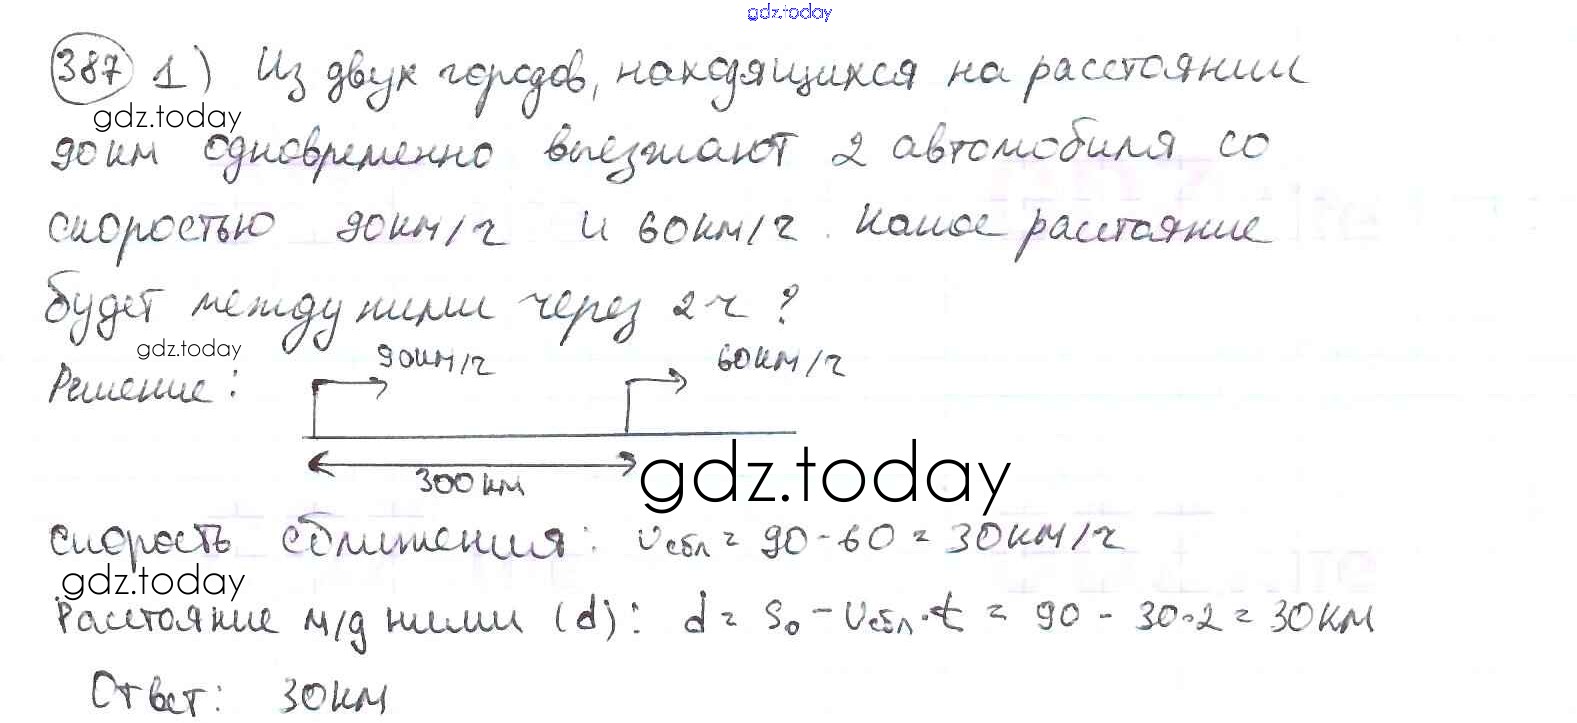 gdz.today
387 1) Из двух городов, находящихся на расстоянии
gdz.today
90 км одновременно выезжают 2 автомобиля со
скоростью 90 км/ч и 60 км/ч. Какое расстояние
будет между ними через 2 ч?
gdz.today
90 км/ч 60 км/ч
Решение:
300 км
gdz.today
Скорость сближения: υсбл = 90 - 60 = 30 км/ч
gdz.today
Расстояние м/д ними (d): d = S₀ - υсбл·t = 90 - 30·2 = 30 км
Ответ: 30 км